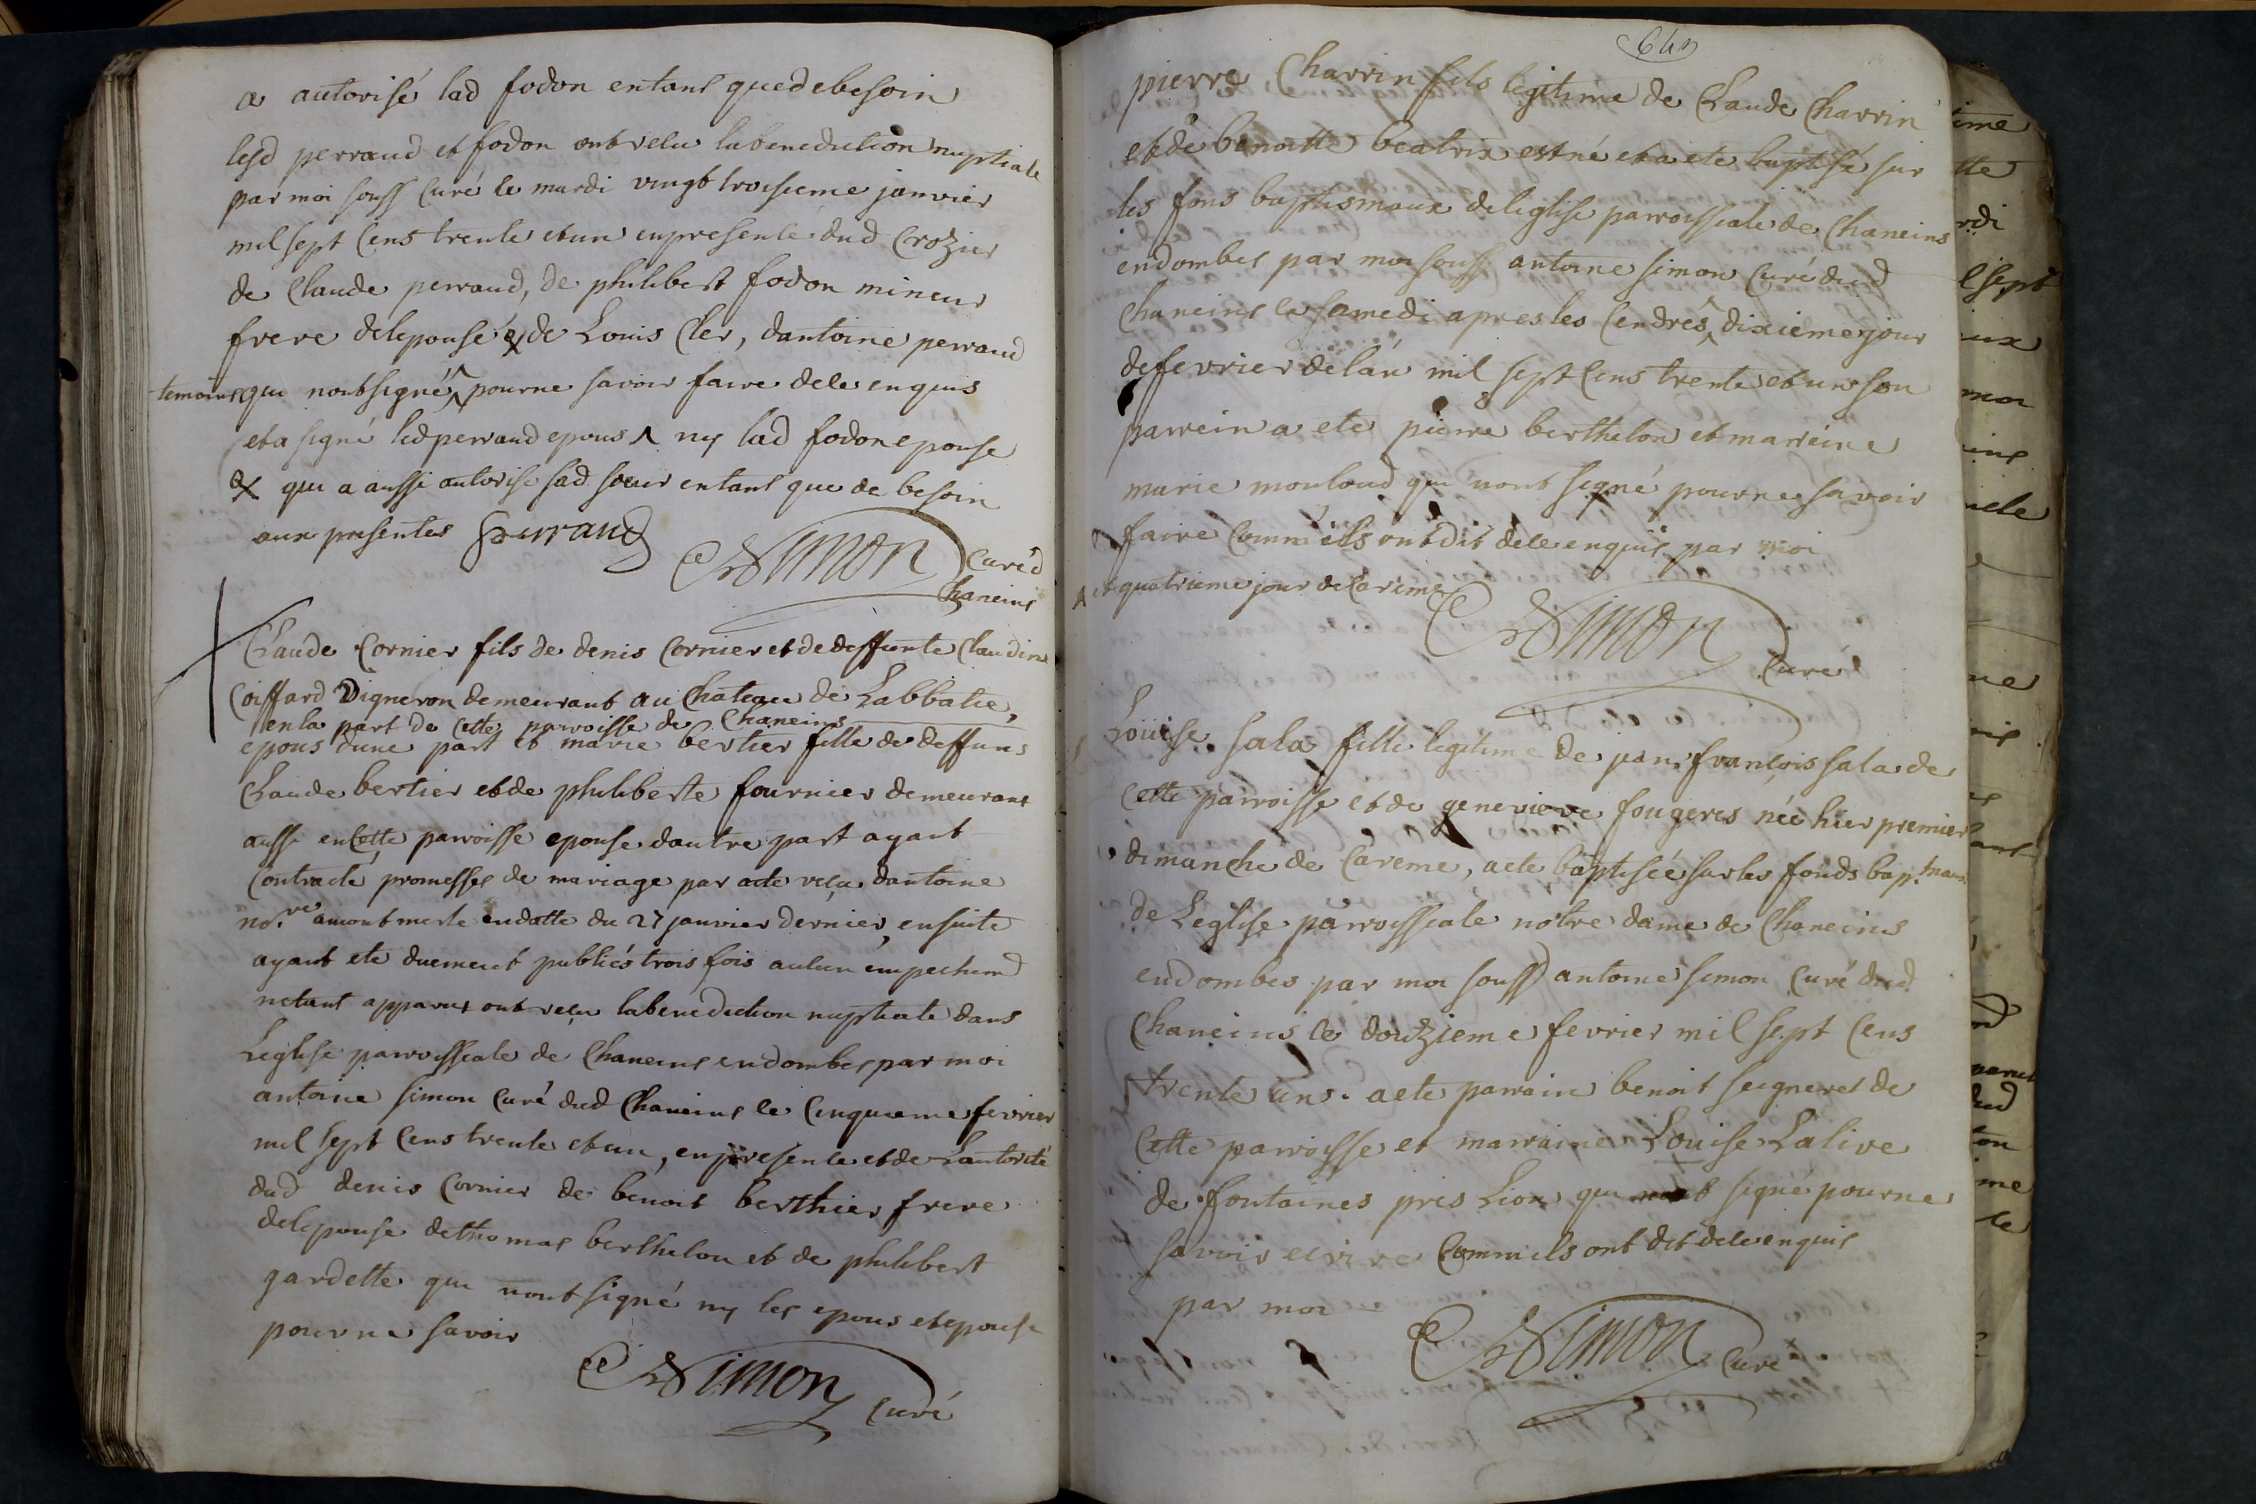 a autorisé lad fodon entant quedebesoin
lesd perraud et fodon ont recu labenediction nuptiale
par moi souss curé le mardi vingt troisieme janvier
mil sept cens trente et un enpresence dud Crozier
de Claude perraud, de philibert fodon mineur
frere delepouse & de Louis Cler, dantoine perraud
temoins qui nont signé pour ne savoir faire dele enquis
et a signé led perraud epous ny lad fodon epouse
& qui a aussi autorisé sad soeur entant que de besoin
aux presentes perraud Simon curé d
Chaneins
Claude Cornier fils de denis Cornier et de deffunte Claudine
Coiffard Vigneron demeurant au Chateau de Labbatie,
en la part de cette parroisse de Chaneins
epous dune part et marie bertier fille de deffuns
Claude bertier et de philiberte fournier demeurant
aussi en cette parroisse epouse dautre part ayant
Contracté promesses de mariage par acte reçu dantoine
nore amont merle en datte du 27 janvier dernier, ensuite
ayant ete duement publiés trois fois aucun empechemd
netant apparus ont reçu labenediction nuptiale dans
Leglise parroissiale de Chaneins endombes par moi
antoine simon curé dud Chaneins le cinquieme fevrier
mil sept cens trente et un, en presence et de Lautorité
dud denis Cornier de benoit berthier frere
delepouse dethomas berthelon et de philibert
gardette qui nont signé ny les epous et epouse
pour ne savoir
Simon curé
pierre Charrin fils legitime de Claude Charrin
et de benoitte beatrix est né et a ete baptisé sur
les fons baptismaux deleglise parroissiale de Chaneins
endombes par moi souss antoine simon Curé dud
Chaneins le samedi apres les Cendres, dixieme jour
defevrier delan mil sept cens trente et un son
parrein a ete pierre berthelon et marreine
marie mouloud qui nont signé pour ne savoir
faire comm'ils ont dit dele enquis par moi
et quatrieme jour de Careme
Simon
Curé
Louise Sala fille legitime de jean françois sala de
Cette parroisse et de genevieve fougeres née hier premier
dimanche de Careme, a ete baptisée sur les fonds bap.maux
de Leglise parroissiale notre dame de Chaneins
endombes par moi souss antoine simon curé dud
Chaneins le douzieme fevrier mil sept cens
trente uns. a ete parrain benoit seigneret de
Cette parroisse et marraine Louise Lalive
de fontaines pres Lion qui nont signé pour ne
savoir ecrire comm'ils ont dit dele enquis
par moi
Simon Curé